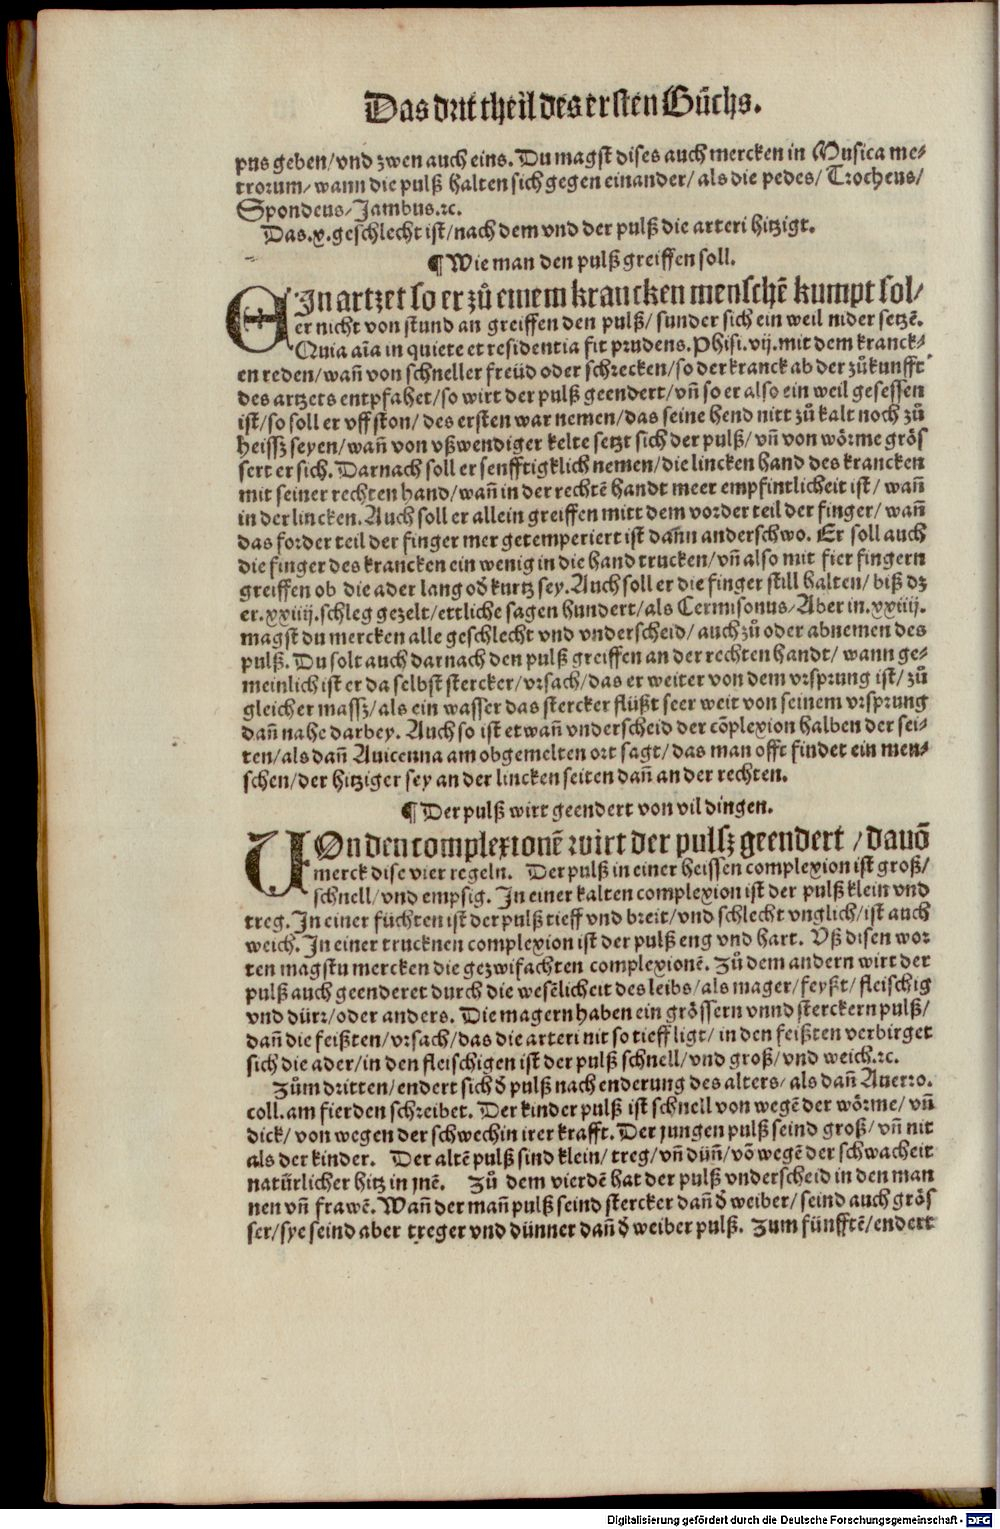 Das drit theil des ersten Bůchs.
pus geben/vnd zwen auch eins. Du magst dises auch mercken in Musica me-
trorum/wann die pulß halten sich gegen einander/als die pedes/Trocheus/
Spondeus/Jambus.ꝛc.
Das.x.geschlecht ist/nach dem vnd der pulß die arteri hitzigt.
¶ Wie man den pulß greiffen soll.
EIn artzet so er zů einem krancken menschē kumpt sol/
er nicht von stund an greiffen den pulß/sunder sich ein weil nider setzē.
Quia aīa in quiete et residentia fit prudens. Phisi.vij.mit dem kranck-
en reden/wañ von schneller freüd oder schrecken/so der kranck ab der zůkunfft
des artzets entpfahet/so wirt der pulß geendert/vñ so er also ein weil gesessen
ist/so soll er vff ston/des ersten war nemen/das seine hend nitt zů kalt noch zů
heissz seyen/wañ von vßwendiger kelte setzt sich der pulß/vñ von wörme grös
sert er sich. Darnach soll er senfftigklich nemen/die lincken hand des krancken
mit seiner rechten hand/wañ in der rechtē handt meer empfintlicheit ist/wañ
in der lincken. Auch soll er allein greiffen mitt dem vorder teil der finger/wañ
das forder teil der finger mer getemperiert ist dañn anderschwo. Er soll auch
die finger des krancken ein wenig in die hand trucken/vñ also mit fier fingern
greiffen ob die ader lang oď kurtz sey. Auch soll er die finger still halten/biß dz
er.xxiiij.schleg gezelt/ettliche sagen hundert/als Cermisonus/Aber in.xxiiij.
magst du mercken alle geschlecht vnd vnderscheid/auch zů oder abnemen des
pulß. Du solt auch darnach den pulß greiffen an der rechten handt/wann ge-
meinlich ist er da selbst stercker/vrsach/das er weiter von dem vrsprung ist/zů
gleicher massz/als ein wasser das stercker flüßt seer weit von seinem vrsprung
dañ nahe darbey. Auch so ist etwañ vnderscheid der cōplexion halben der sei-
ten/als dañ Auicenna am obgemelten ort sagt/das man offt findet ein men-
schen/der hitziger sey an der lincken seiten dañ an der rechten.
¶ Der pulß wirt geendert von vil dingen.
VOn den complexionē wirt der pulsz geendert/dauō
merck dise vier regeln. Der pulß in einer heissen complexion ist groß/
schnell/vnd empsig. In einer kalten complexion ist der pulß klein vnd
treg. In einer füchten ist der pulß tieff vnd breit/vnd schlecht vnglich/ist auch
weich. In einer trucknen complexion ist der pulß eng vnd hart. Vß disen wor
ten magstu mercken die gezwifachten complexionē. Zů dem andern wirt der
pulß auch geenderet durch die wesēlicheit des leibs/als mager/feyßt/fleischig
vnd dürr/oder anders. Die magern haben ein grössern vnnd sterckern pulß/
dañ die feißten/vrsach/das die arteri nit so tieff ligt/in den feißten verbirget
sich die ader/in den fleischigen ist der pulß schnell/vnd groß/vnd weich.ꝛc.
Zům dritten/endert sich ď pulß nach enderung des alters/als dañ Auerro.
coll.am fierden schreibet. Der kinder pulß ist schnell von wegē der wörme/vñ
dick/von wegen der schwechin irer krafft. Der jungen pulß seind groß/vñ nit
als der kinder. Der altē pulß sind klein/treg/vñ düñ/vō wegē der schwacheit
natürlicher hitz in jnē. Zů dem vierdē hat der pulß vnderscheid in den man
nen vñ frawē. Wañ der mañ pulß seind stercker dañ ď weiber/seind auch grös
ser/sye seind aber treger vnd dünner dañ ď weiber pulß. Zum fünfftē/endert
Digitalisierung gefördert durch die Deutsche Forschungsgemeinschaft - DFG